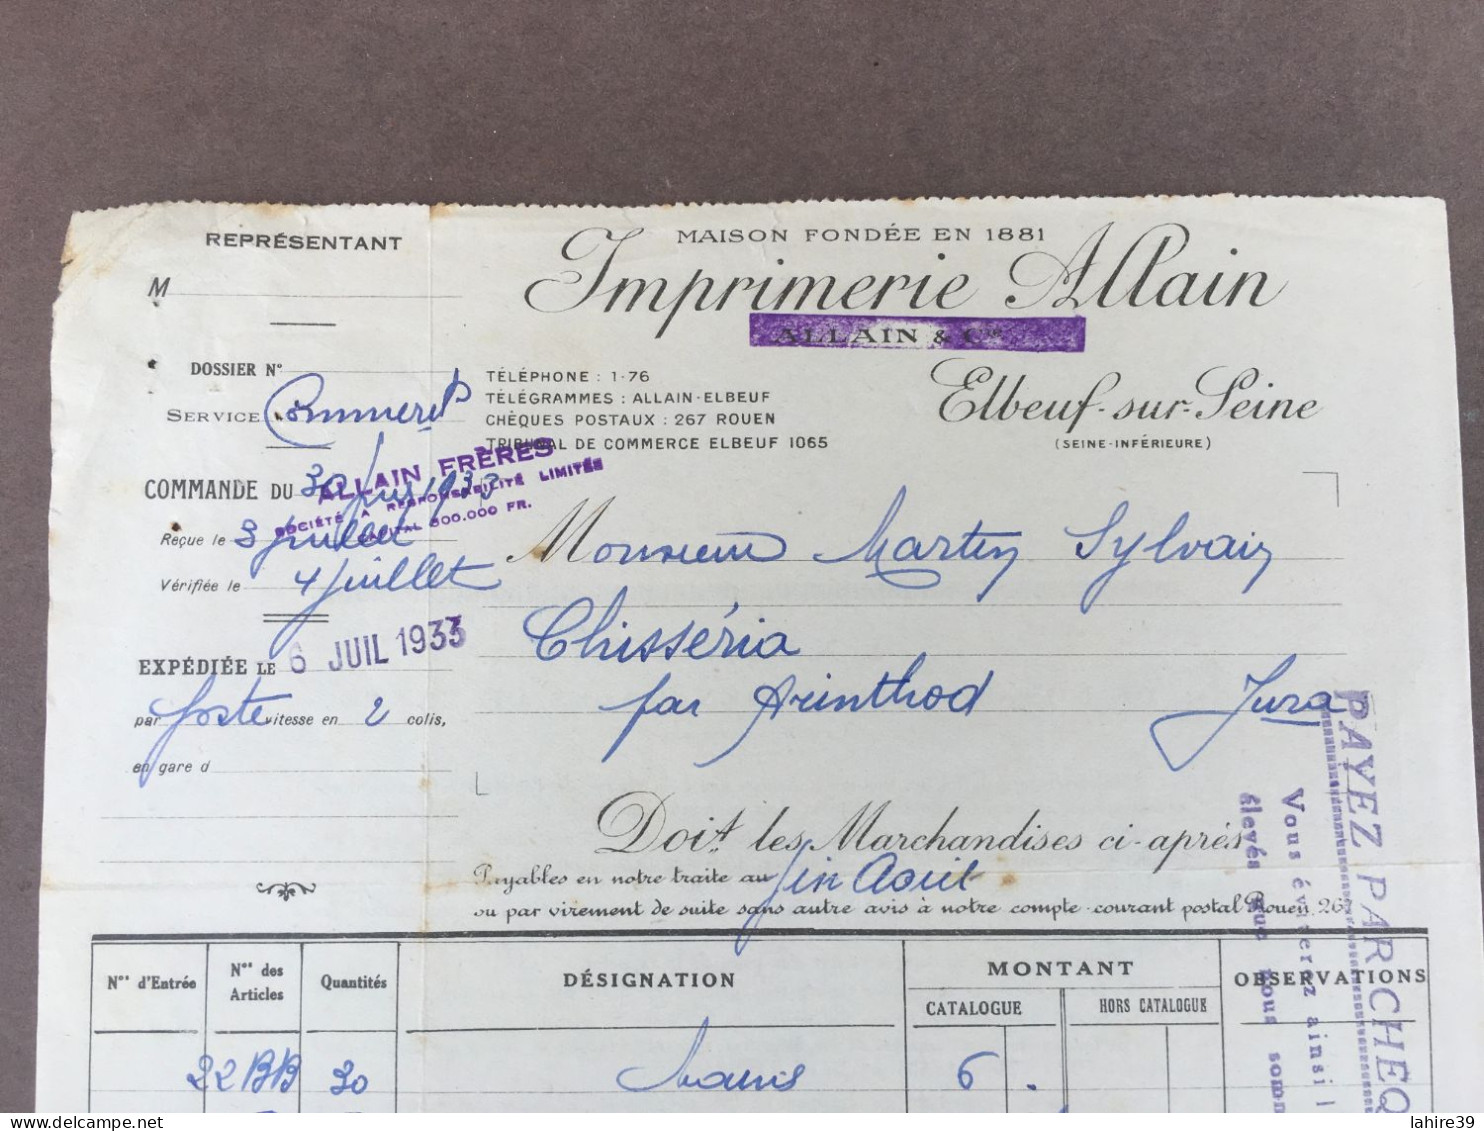 REPRÉSENTANT
M
DOSSIER N°
SERVICE
COMMANDE DU 30 1933
Reçue le 3 juillet
Vérifiée le 4 juillet
EXPÉDIÉE LE 6 JUIL 1933
par poste vitesse en 2 colis,
en gare d
ALLAIN FRÈRES
SOCIÉTÉ A RESPONSABILITÉ LIMITÉE
CAPITAL 800.000 FR.
MAISON FONDÉE EN 1881
Imprimerie Allain
ALLAIN & Cie
Elbeuf-sur-Seine
(SEINE-INFÉRIEURE)
TÉLÉPHONE : 1-76
TÉLÉGRAMMES : ALLAIN-ELBEUF
CHÈQUES POSTAUX : 267 ROUEN
TRIBUNAL DE COMMERCE ELBEUF 1065
Monsieur Martin Sylvain
Chisséria
par Arinthod Jura
Doit les Marchandises ci-après
Payables en notre traite au fin Août
ou par virement de suite sans autre avis à notre compte-courant postal Rouen 267
PAYEZ PAR CHEQ
Vous éviterez ainsi l
élevés que nous somm
Nos d'Entrée
Nos des Articles
Quantités
DÉSIGNATION
MONTANT
CATALOGUE
HORS CATALOGUE
OBSERVATIONS
22 BB 30 6 .
lahire39